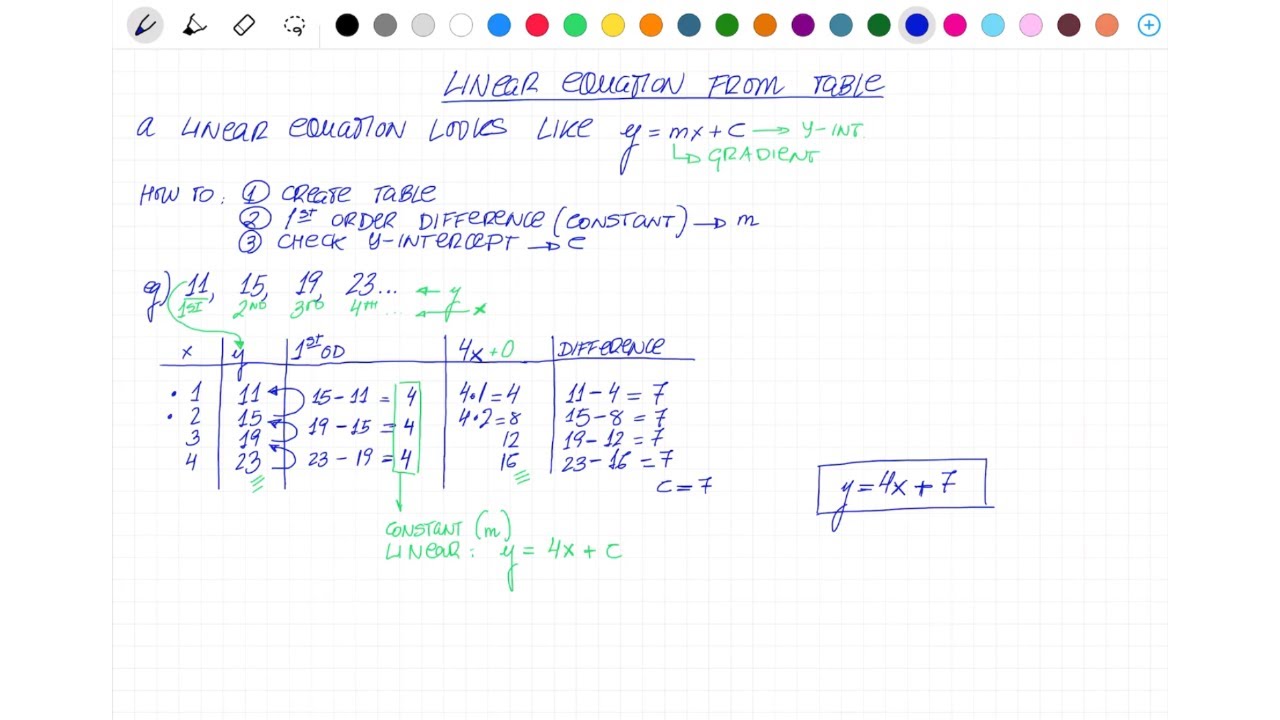 LINEAR EQUATION FROM TABLE
A LINEAR EQUATION LOOKS LIKE y = mx + C → Y-INT.
↳ GRADIENT
HOW TO: ① CREATE TABLE
② 1ST ORDER DIFFERENCE (CONSTANT) → m
③ CHECK Y-INTERCEPT → C
eg) 11, 15, 19, 23... ← y
1ST 2ND 3RD 4TH... ← x
x | y | 1st OD | 4x+0 | DIFFERENCE
• 1 | 11 | 15-11 = 4 | 4•1=4 | 11-4=7
• 2 | 15 | 19-15 = 4 | 4•2=8 | 15-8=7
3 | 19 | 23-19 = 4 | 12 | 19-12=7
4 | 23 | 16 | 23-16=7
C=7
y=4x+7
CONSTANT (m)
LINEAR: y = 4x + C